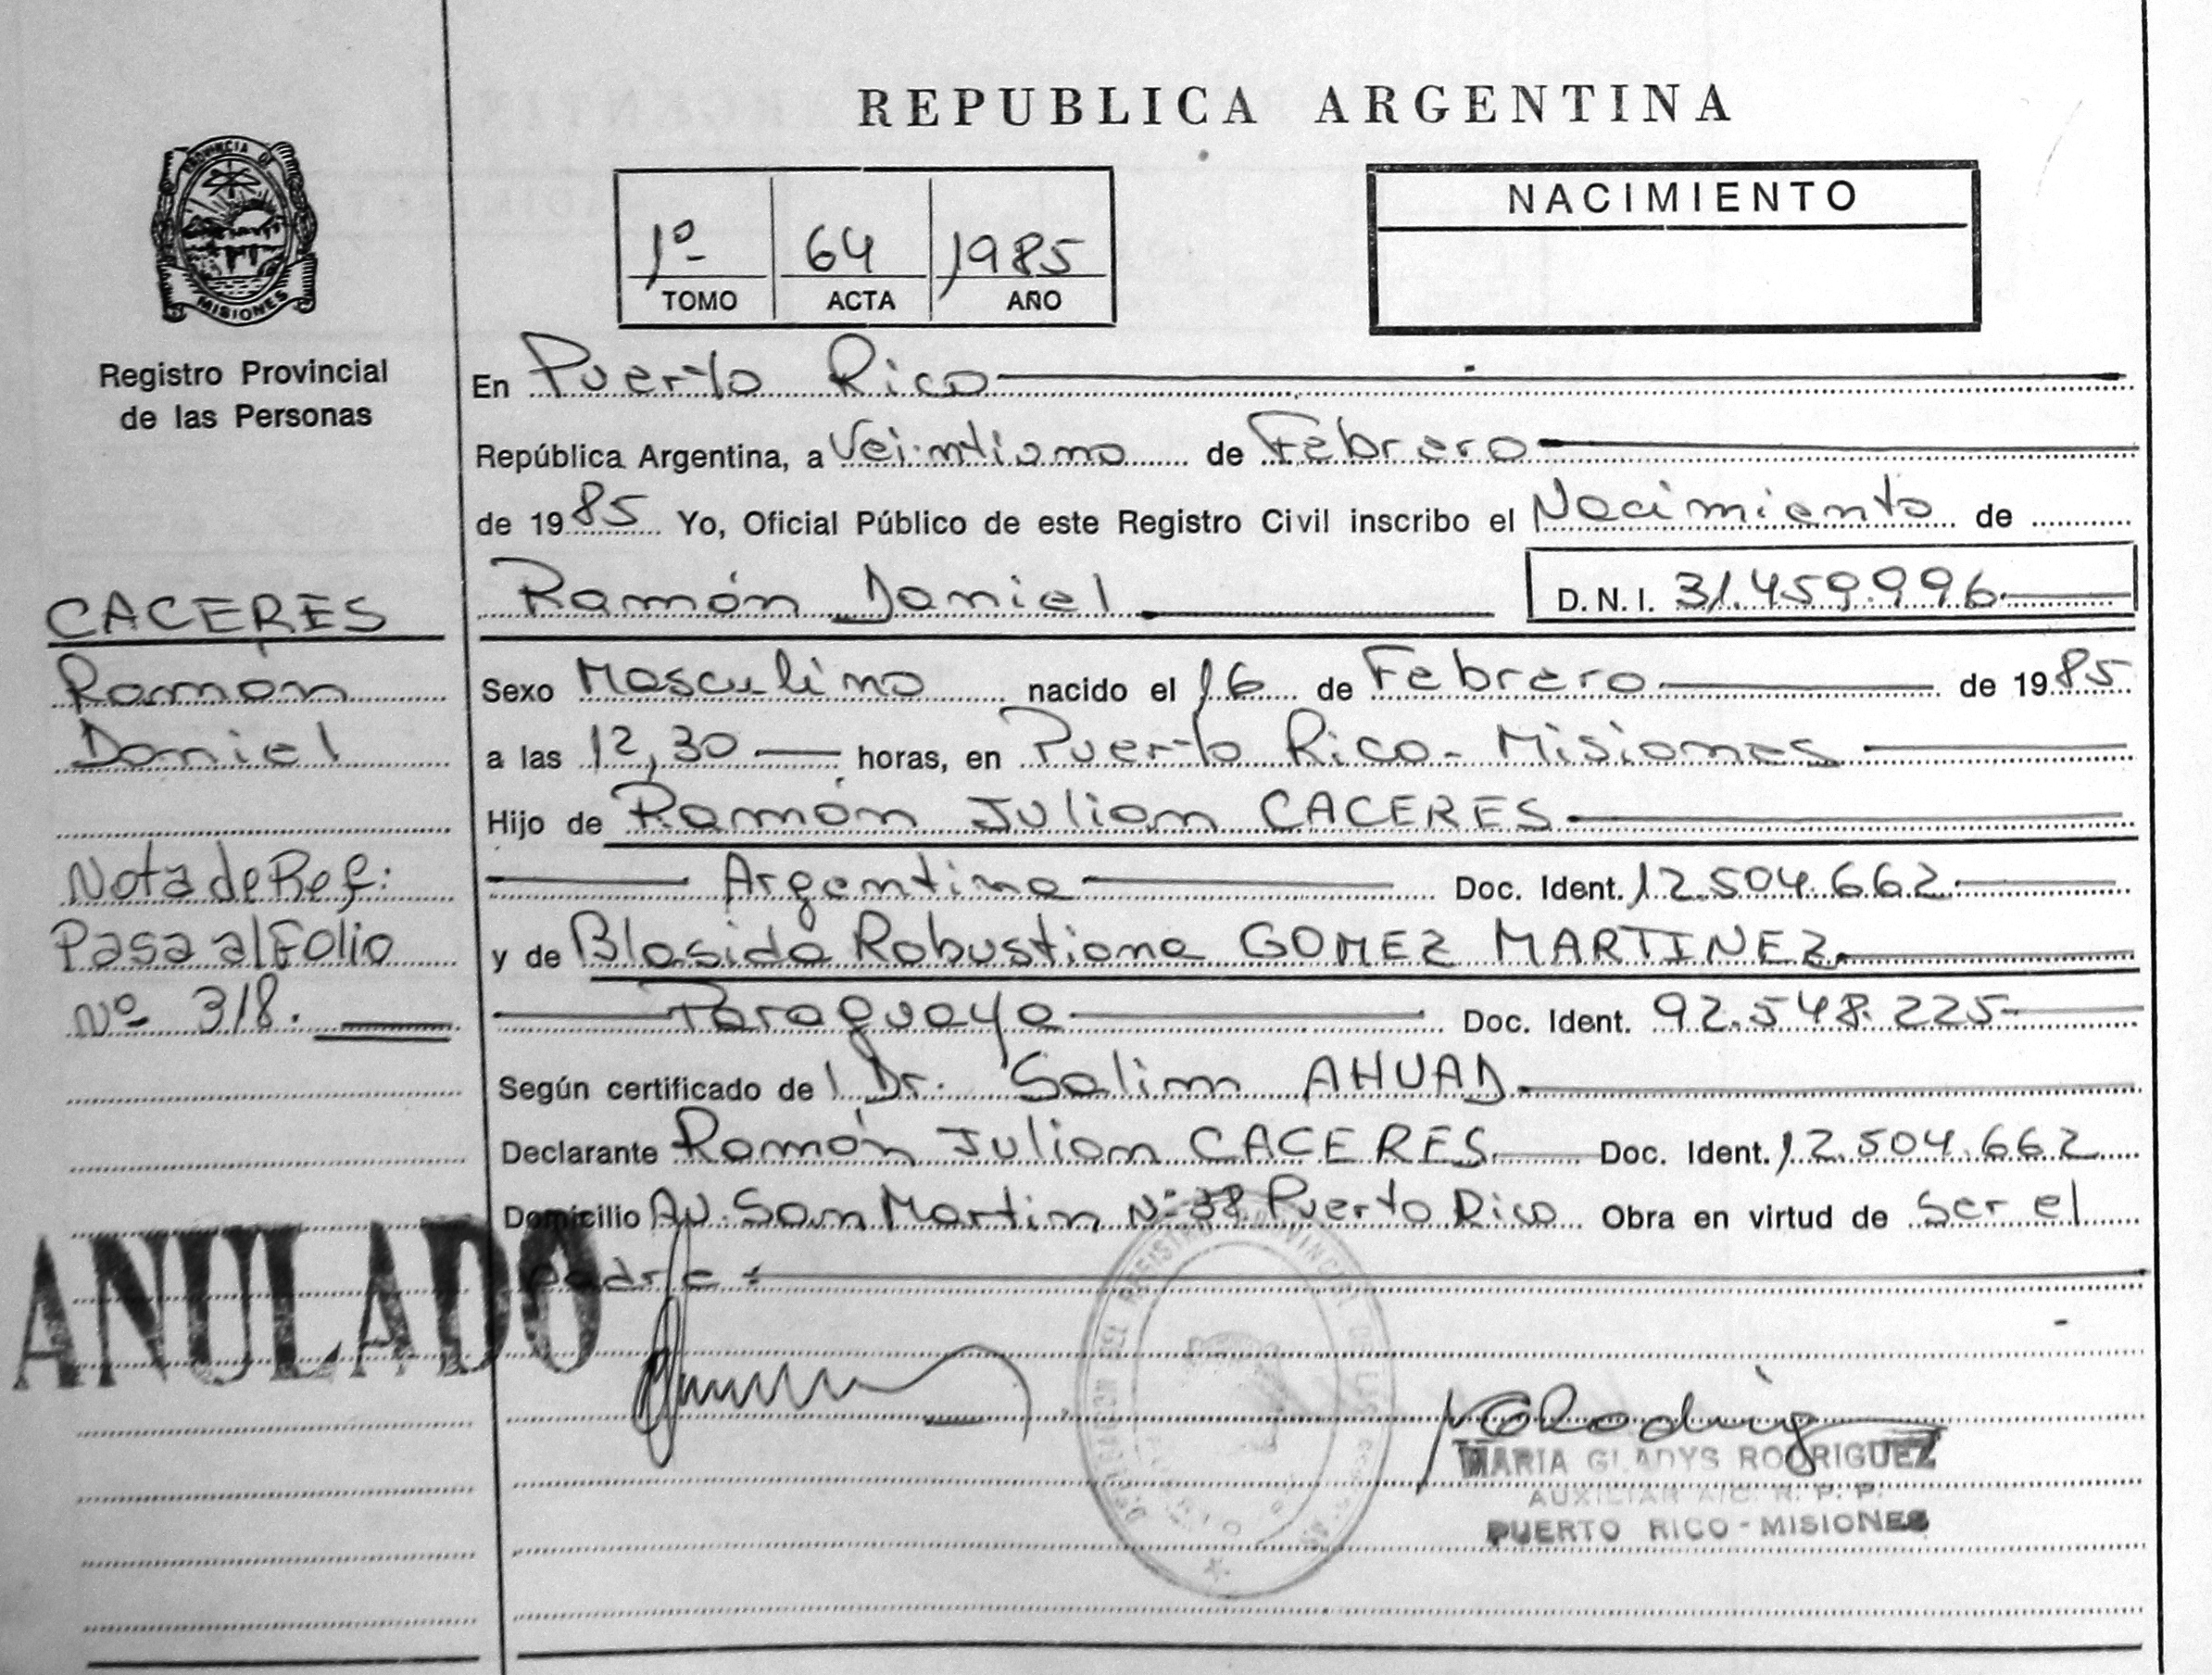 REPUBLICA ARGENTINA
PROVINCIA DE
MISIONES
Registro Provincial
de las Personas
1º 64 1985
TOMO ACTA AÑO
NACIMIENTO
En Puerto Rico
República Argentina, a Veintiuno de Febrero
de 1985 Yo, Oficial Público de este Registro Civil inscribo el Nacimiento de
Ramón Daniel D.N.I. 31.459.996
CACERES
Ramón
Daniel
Nota de Ref:
Pasa al Folio
Nº 318.
Sexo Masculino nacido el 16 de Febrero de 1985
a las 12,30 horas, en Puerto Rico - Misiones
Hijo de Ramón Julian CACERES
Argentino Doc. Ident. 12.504.662
y de Blasida Robustiana GOMEZ MARTINEZ
Paraguaya Doc. Ident. 92.548.225
Según certificado del Dr. Salim AHUAD
Declarante Ramón Julian CACERES Doc. Ident. 12.504.662
Domicilio Av. San Martin Nº 38 Puerto Rico Obra en virtud de ser el
padre
ANULADO
MARIA GLADYS RODRIGUEZ
AUXILIAR R. P. P.
PUERTO RICO - MISIONES